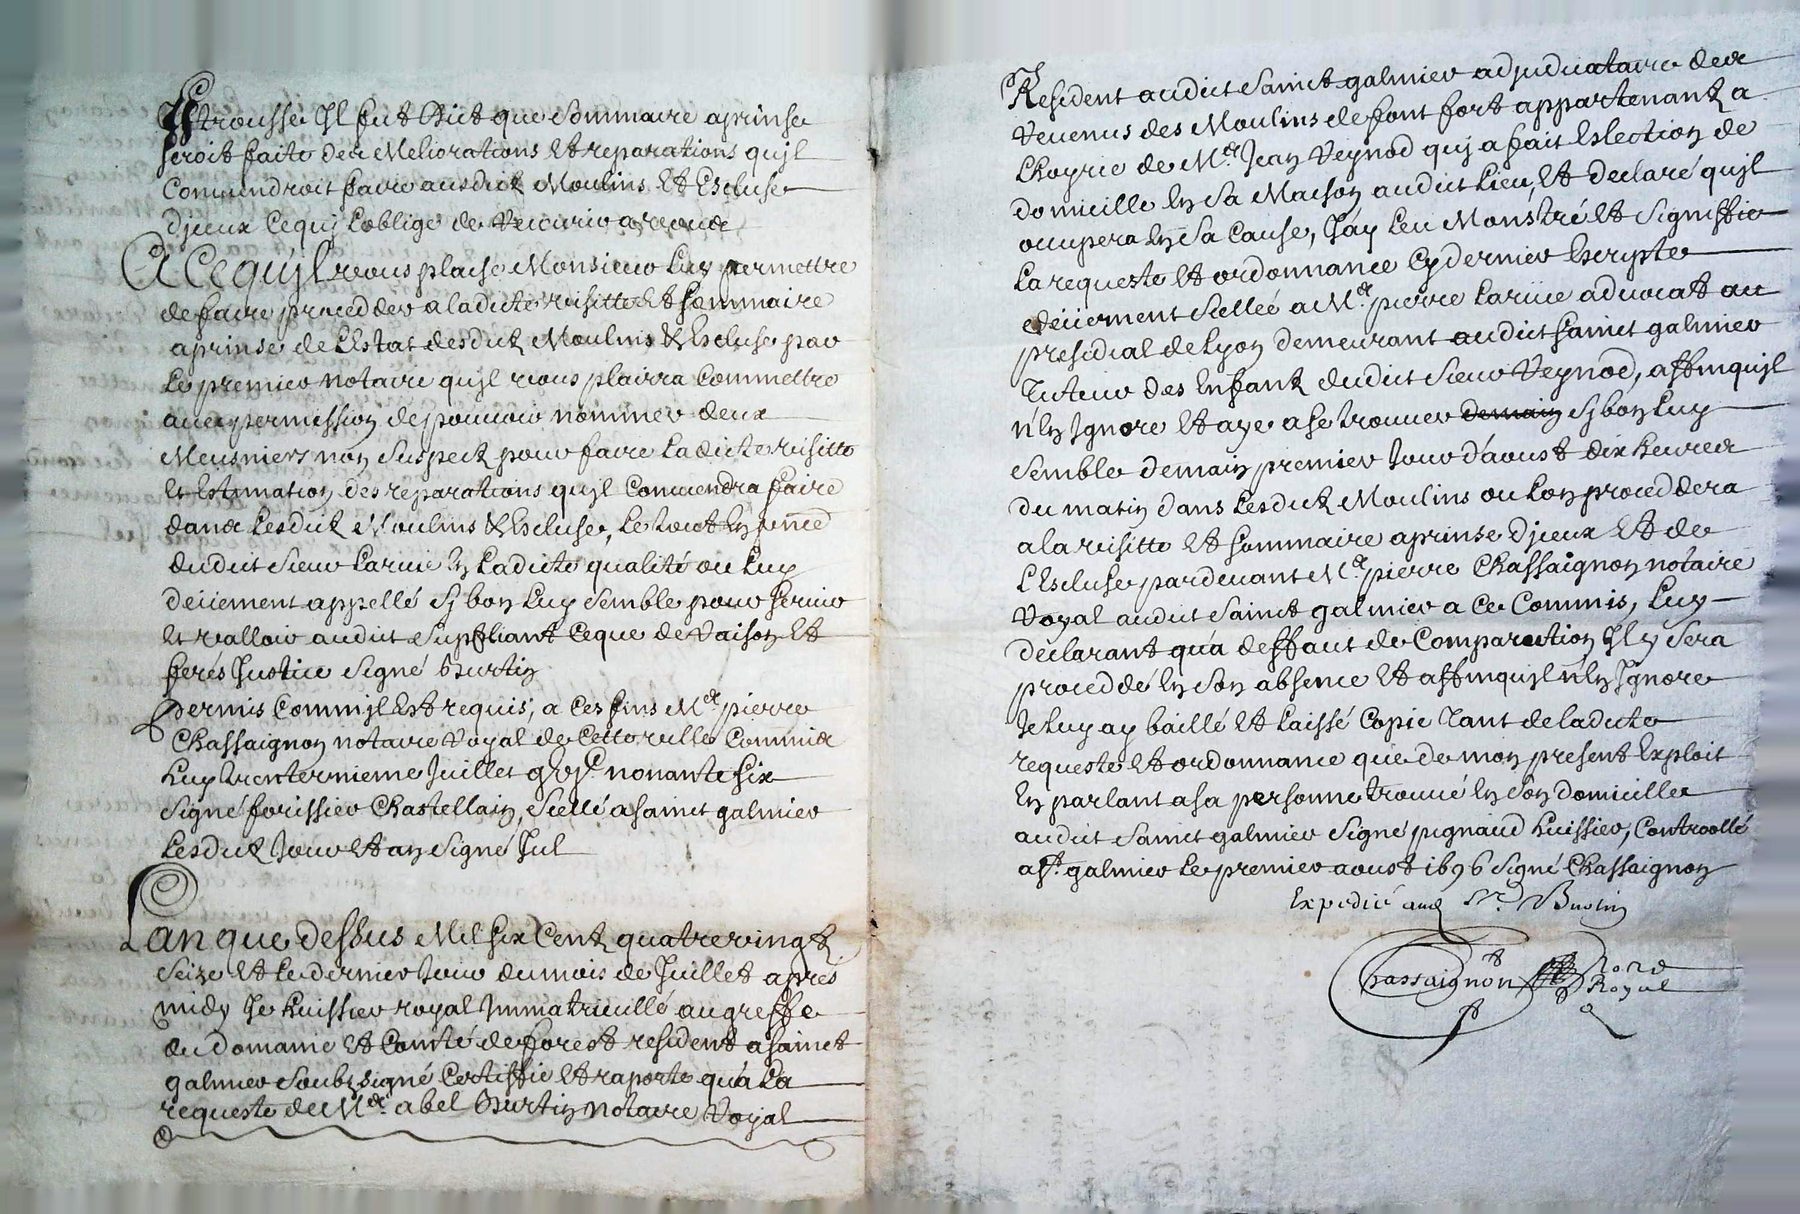 trousse Il fut Dict que Sommaire aprinse
seroit faite des Meliorations Et reparations quyl
Conuiendroit faire ausdictz Moulins Et Escluse
Djceux Ce quj Loblige de Recourir a vous
A Ce quyl vous plaise Monsieur Luy permettre
de faire procedder a ladicte visitte Et Sommaire
aprinse de L'Estat desdictz Moulins & Escluse par
Le premier notaire quyl vous plairra Commettre
auec permission de pouuoir nommer deux
Meusniers non Suspectz pour faire La dicte visitte
Et Estimation des reparations quyl Conuiendra faire
dans Lesdictz Moulins & Escluse, Le tout En pnce
dudict Sieur Lariue En Ladicte qualité ou Luy
Deüement appellé Sj bon Luy Semble pour seruir
Et valloir audict Suppliant Ce que de Raison Et
ferés Justice Signé Burtin
permis Comm'jl Est requis, a Ces fins Me pierre
Chassaignon notaire Royal de Cette ville Commis
Luy trenternieme Juillet nonante six
Signé forissier Chastellain, Scellé a Sainct galmier
Lesdictz Jour Et an Signé Jul
Lan que dessus Mil six Centz quatre vingtz
Seize Et Le dernier Jour du mois de Juillet aprés
midy Je huissier royal Jmmatricullé au greffe
du Domaine Et Comté de forest resident a Sainct
galmier Soubzsigné Certiffie Et raporte qu'a La
requeste de Me abel Burtin Notaire Royal
Resident audict Sainct galmier adjudicataire des
reuenus des Moulins de font fort appartenantz a
L'hoyrie de Me Jean Reynod quj a fait Eslection de
domicille En Sa Maison audict Lieu, Et déclaré quyl
occupera En Sa Cause, J'ay Leu Monstré Et Signiffie
La requeste Et ordonnance Cy dernier Escripte
deüement Scellée a Me pierre Lariue aduocat au
presidial de Lyon demeurant audict Sainct galmier
Tuteur des Enfantz dudict Sieur Reynod, affinquyl
n'En Jgnore Et aye a se trouuer demain Sj bon Luy
Semble demain premier Jour d'aoust dix heures
du matin dans Lesdictz Moulins ou Lon proceddera
a la visitte Et Sommaire aprinse Djceux Et de
L'Escluse pardeuant Me pierre Chassaignon notaire
Royal audict Sainct galmier a Ce Commis, Luy
déclarant qu'a deffaut de Comparution Jl y Sera
proceddé En Son absence Et affinquyl n'En Jgnore
Je Luy ay baillé Et Laissé Copie Tant de ladicte
requeste Et ordonnance que de mon present Exploit
En parlant a sa personne trouué En Son domicille
audict Sainct galmier Signé pignaud huissier, Controollé
a St galmier Le premier aoust 1696 Signé Chassaignon
Expedié aud Sr Burtin
Chassaignon Nore
Royal